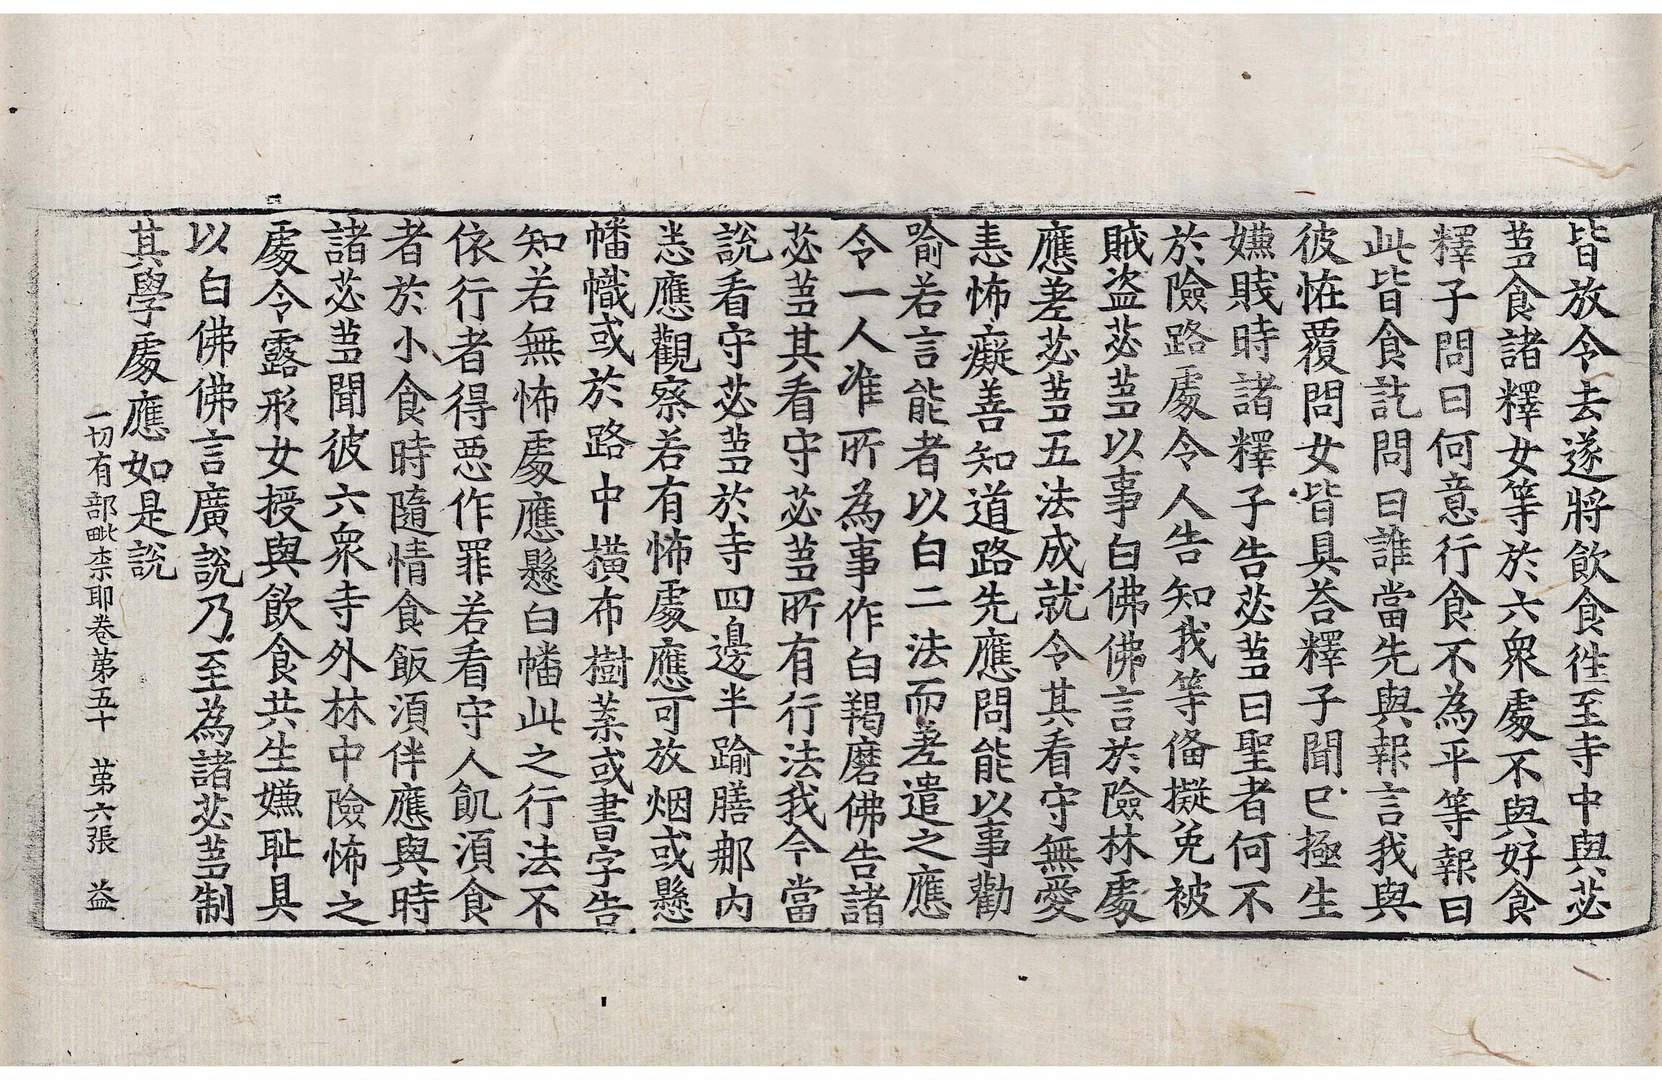 皆放令去遂將飲食徃至寺中與苾
蒭食諸釋女等於六衆處不與好食
釋子問曰何意行食不為平等報曰
此皆食訖問曰誰當先與報言我與
彼恠覆問女皆具荅釋子聞已極生
嫌賤時諸釋子告苾蒭曰聖者何不
於險路處令人告知我等俻擬免被
賊盜苾蒭以事白佛佛言於險林處
應差苾蒭五法成就令其看守無愛
恚怖癡善知道路先應問能以事勸
喻若言能者以白二法而差遣之應
令一人准所為事作白羯磨佛告諸
苾蒭其看守苾蒭所有行法我今當
說看守苾蒭於寺四邊半踰膳那內
悉應觀察若有怖處應可放烟或懸
幡幟或於路中橫布樹葉或書字告
知若無怖處應懸白幡此之行法不
依行者得惡作罪若看守人飢湏食
者於小食時隨情食飯湏伴應與時
諸苾蒭聞彼六衆寺外林中險怖之
處令露形女授與飲食共生嫌耻具
以白佛佛言廣說乃至為諸苾蒭制
其學處應如是說
一切有部毗柰耶卷第五十　第六張　益